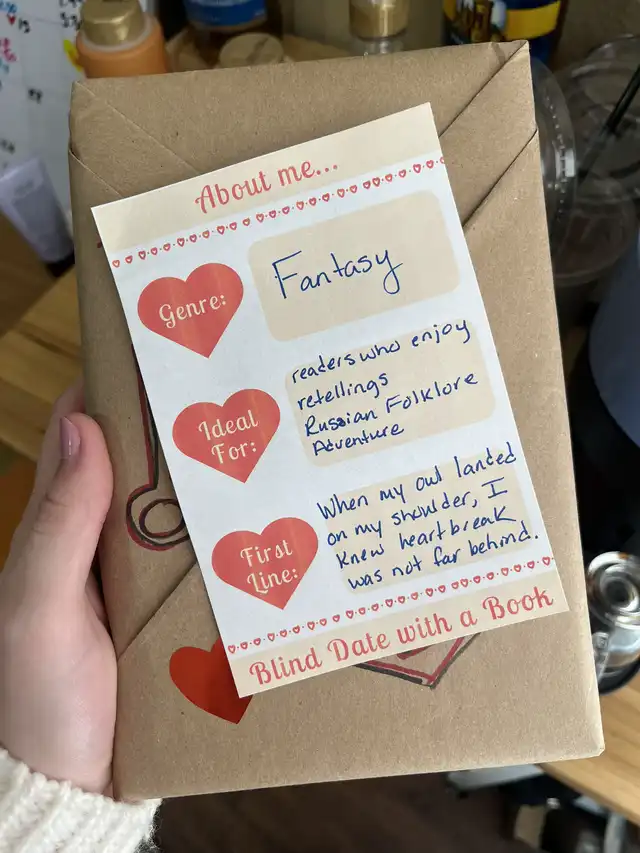 About me...
Genre:
Fantasy
Ideal
For:
readers who enjoy
retellings
Russian Folklore
Adventure
First
Line:
When my owl landed
on my shoulder, I
knew heartbreak
was not far behind.
Blind Date with a Book